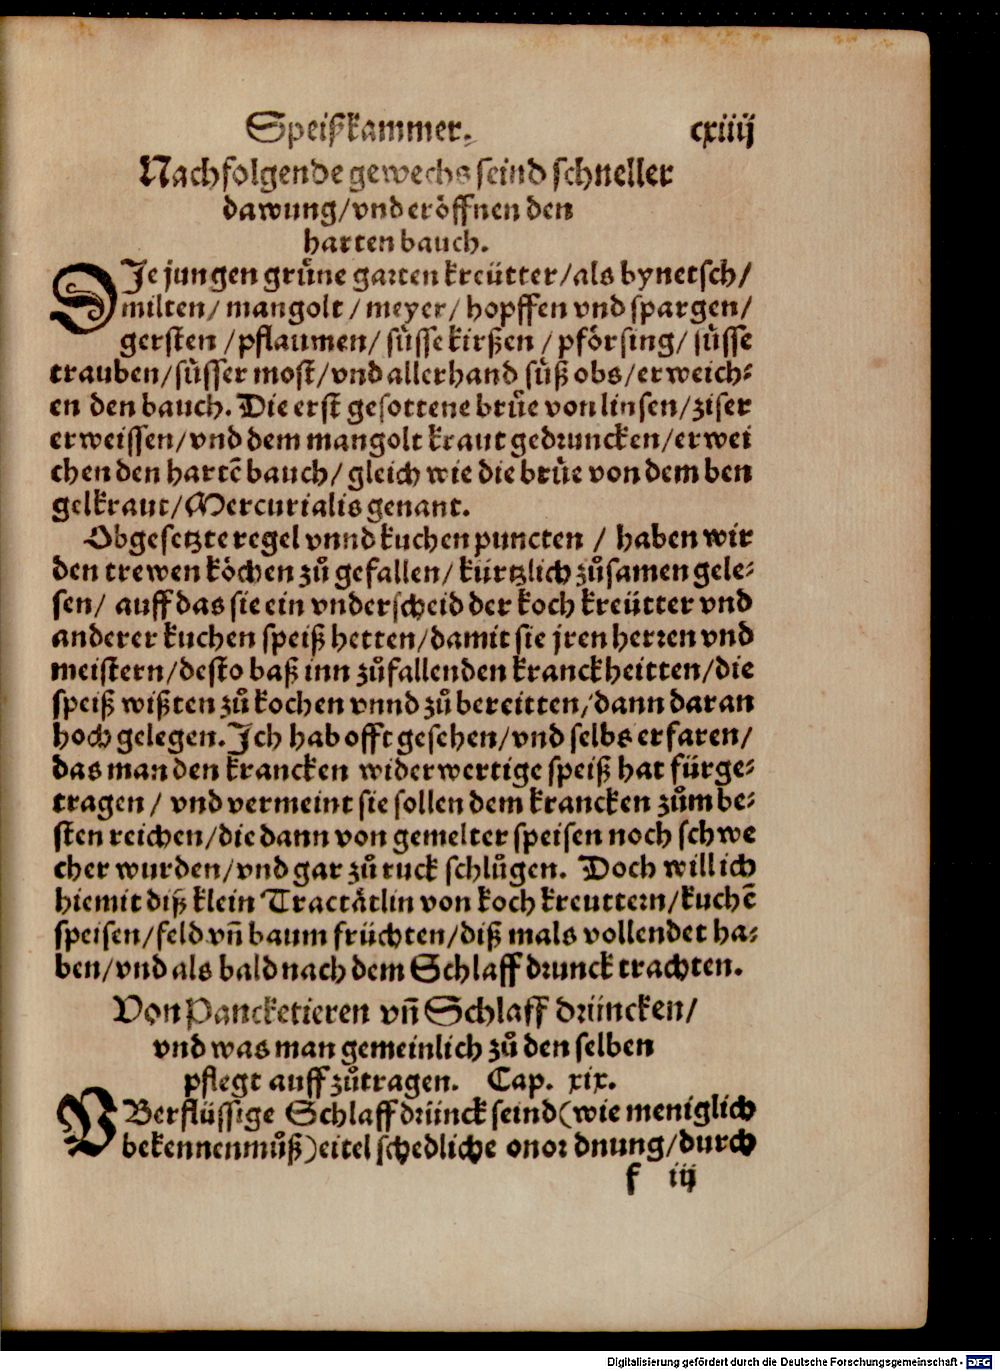 Speißkammer. cxiiij
Nachfolgende gewechs seind schneller
dawung/vnd eröffnen den
harten bauch.
DIe jungen grůne garten kreütter/als bynetsch/
milten/ mangolt / meyer/ hopffen vnd spargen/
gersten /pflaumen/ sůsse kirßen / pförsing/ sůsse
trauben/sůsser most/vnd allerhand sůß obs/erweich⸗
en den bauch. Die erst gesottene brůe von linsen/ziser
erweissen/vnd dem mangolt kraut gedruncken/erwei
chen den hartē bauch/ gleich wie die brůe von dem ben
gelkraut/Mercurialis genant.
Obgesetzte regel vnnd kuchen puncten / haben wir
den trewen köchen zů gefallen/ kürtzlich zůsamen gele⸗
sen/ auff das sie ein vnderscheid der koch kreütter vnd
anderer kuchen speiß hetten/damit sie jren herren vnd
meistern/desto baß inn zůfallenden kranckheitten/die
speiß wißten zů kochen vnnd zů bereitten/dann daran
hoch gelegen. Ich hab offt gesehen/vnd selbs erfaren/
das man den krancken widerwertige speiß hat fürge⸗
tragen / vnd vermeint sie sollen dem krancken zům be⸗
sten reichen/die dann von gemelter speisen noch schwe
cher wurden/vnd gar zů ruck schlůgen. Doch will ich
hiemit diß klein Tractätlin von koch kreuttern/kuchē
speisen/feld vñ baum früchten/diß mals vollendet ha⸗
ben/vnd als bald nach dem Schlaff drunck trachten.
Von Pancketieren vñ Schlaff drüncken/
vnd was man gemeinlich zů den selben
pflegt auff zůtragen. Cap. xix.
VBerflüssige Schlaff drünck seind (wie meniglich
bekennen můß) eitel schedliche onordnung/durch
f iij
Digitalisierung gefördert durch die Deutsche Forschungsgemeinschaft - DFG